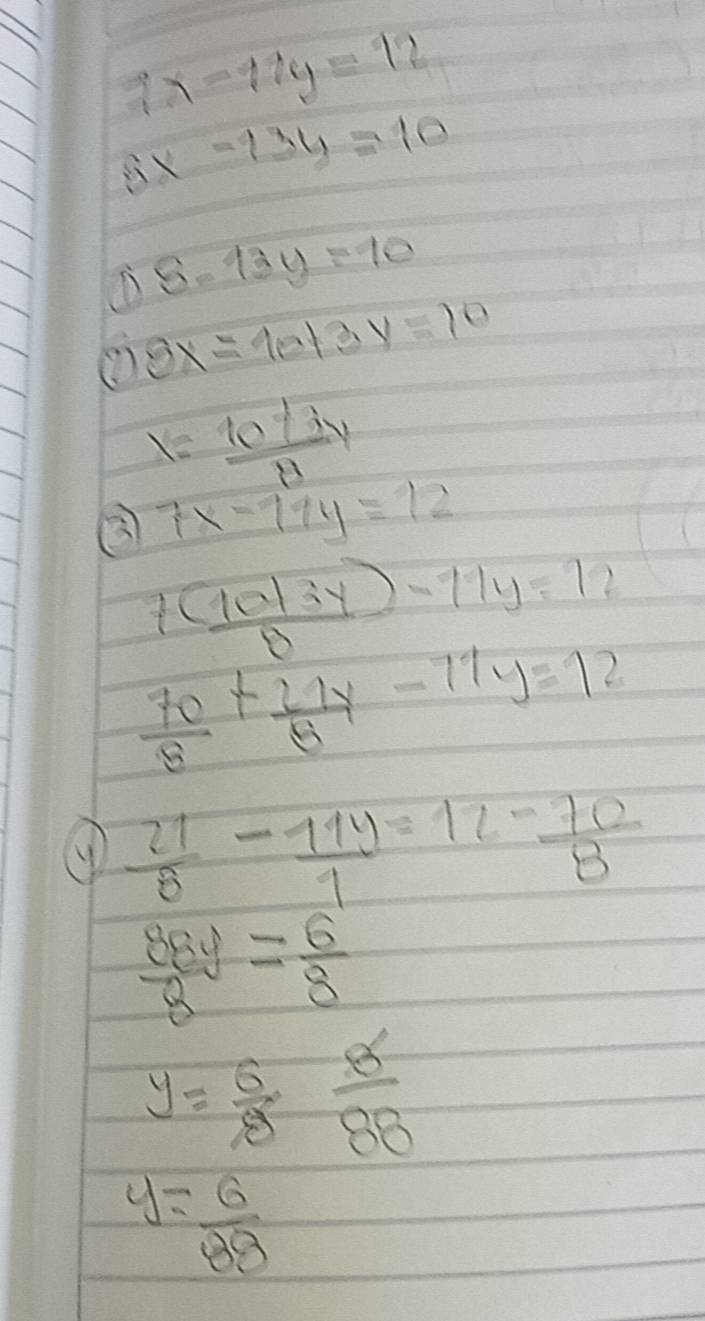 7x - 11y = 12
8x - 13y = 10
① 8 - 13y = 10
② 8x = 10+3y = 10
x = \frac{10+3y}{8}
③ 7x - 11y = 12
7(\frac{10+3y}{8}) - 11y = 12
\frac{70}{8} + \frac{21y}{8} - 11y = 12
④ \frac{21}{8} - \frac{11y}{1} = 12 - \frac{70}{8}
\frac{88y}{8} = \frac{6}{8}
y = \frac{6}{8} \frac{8}{88}
y = \frac{6}{88}